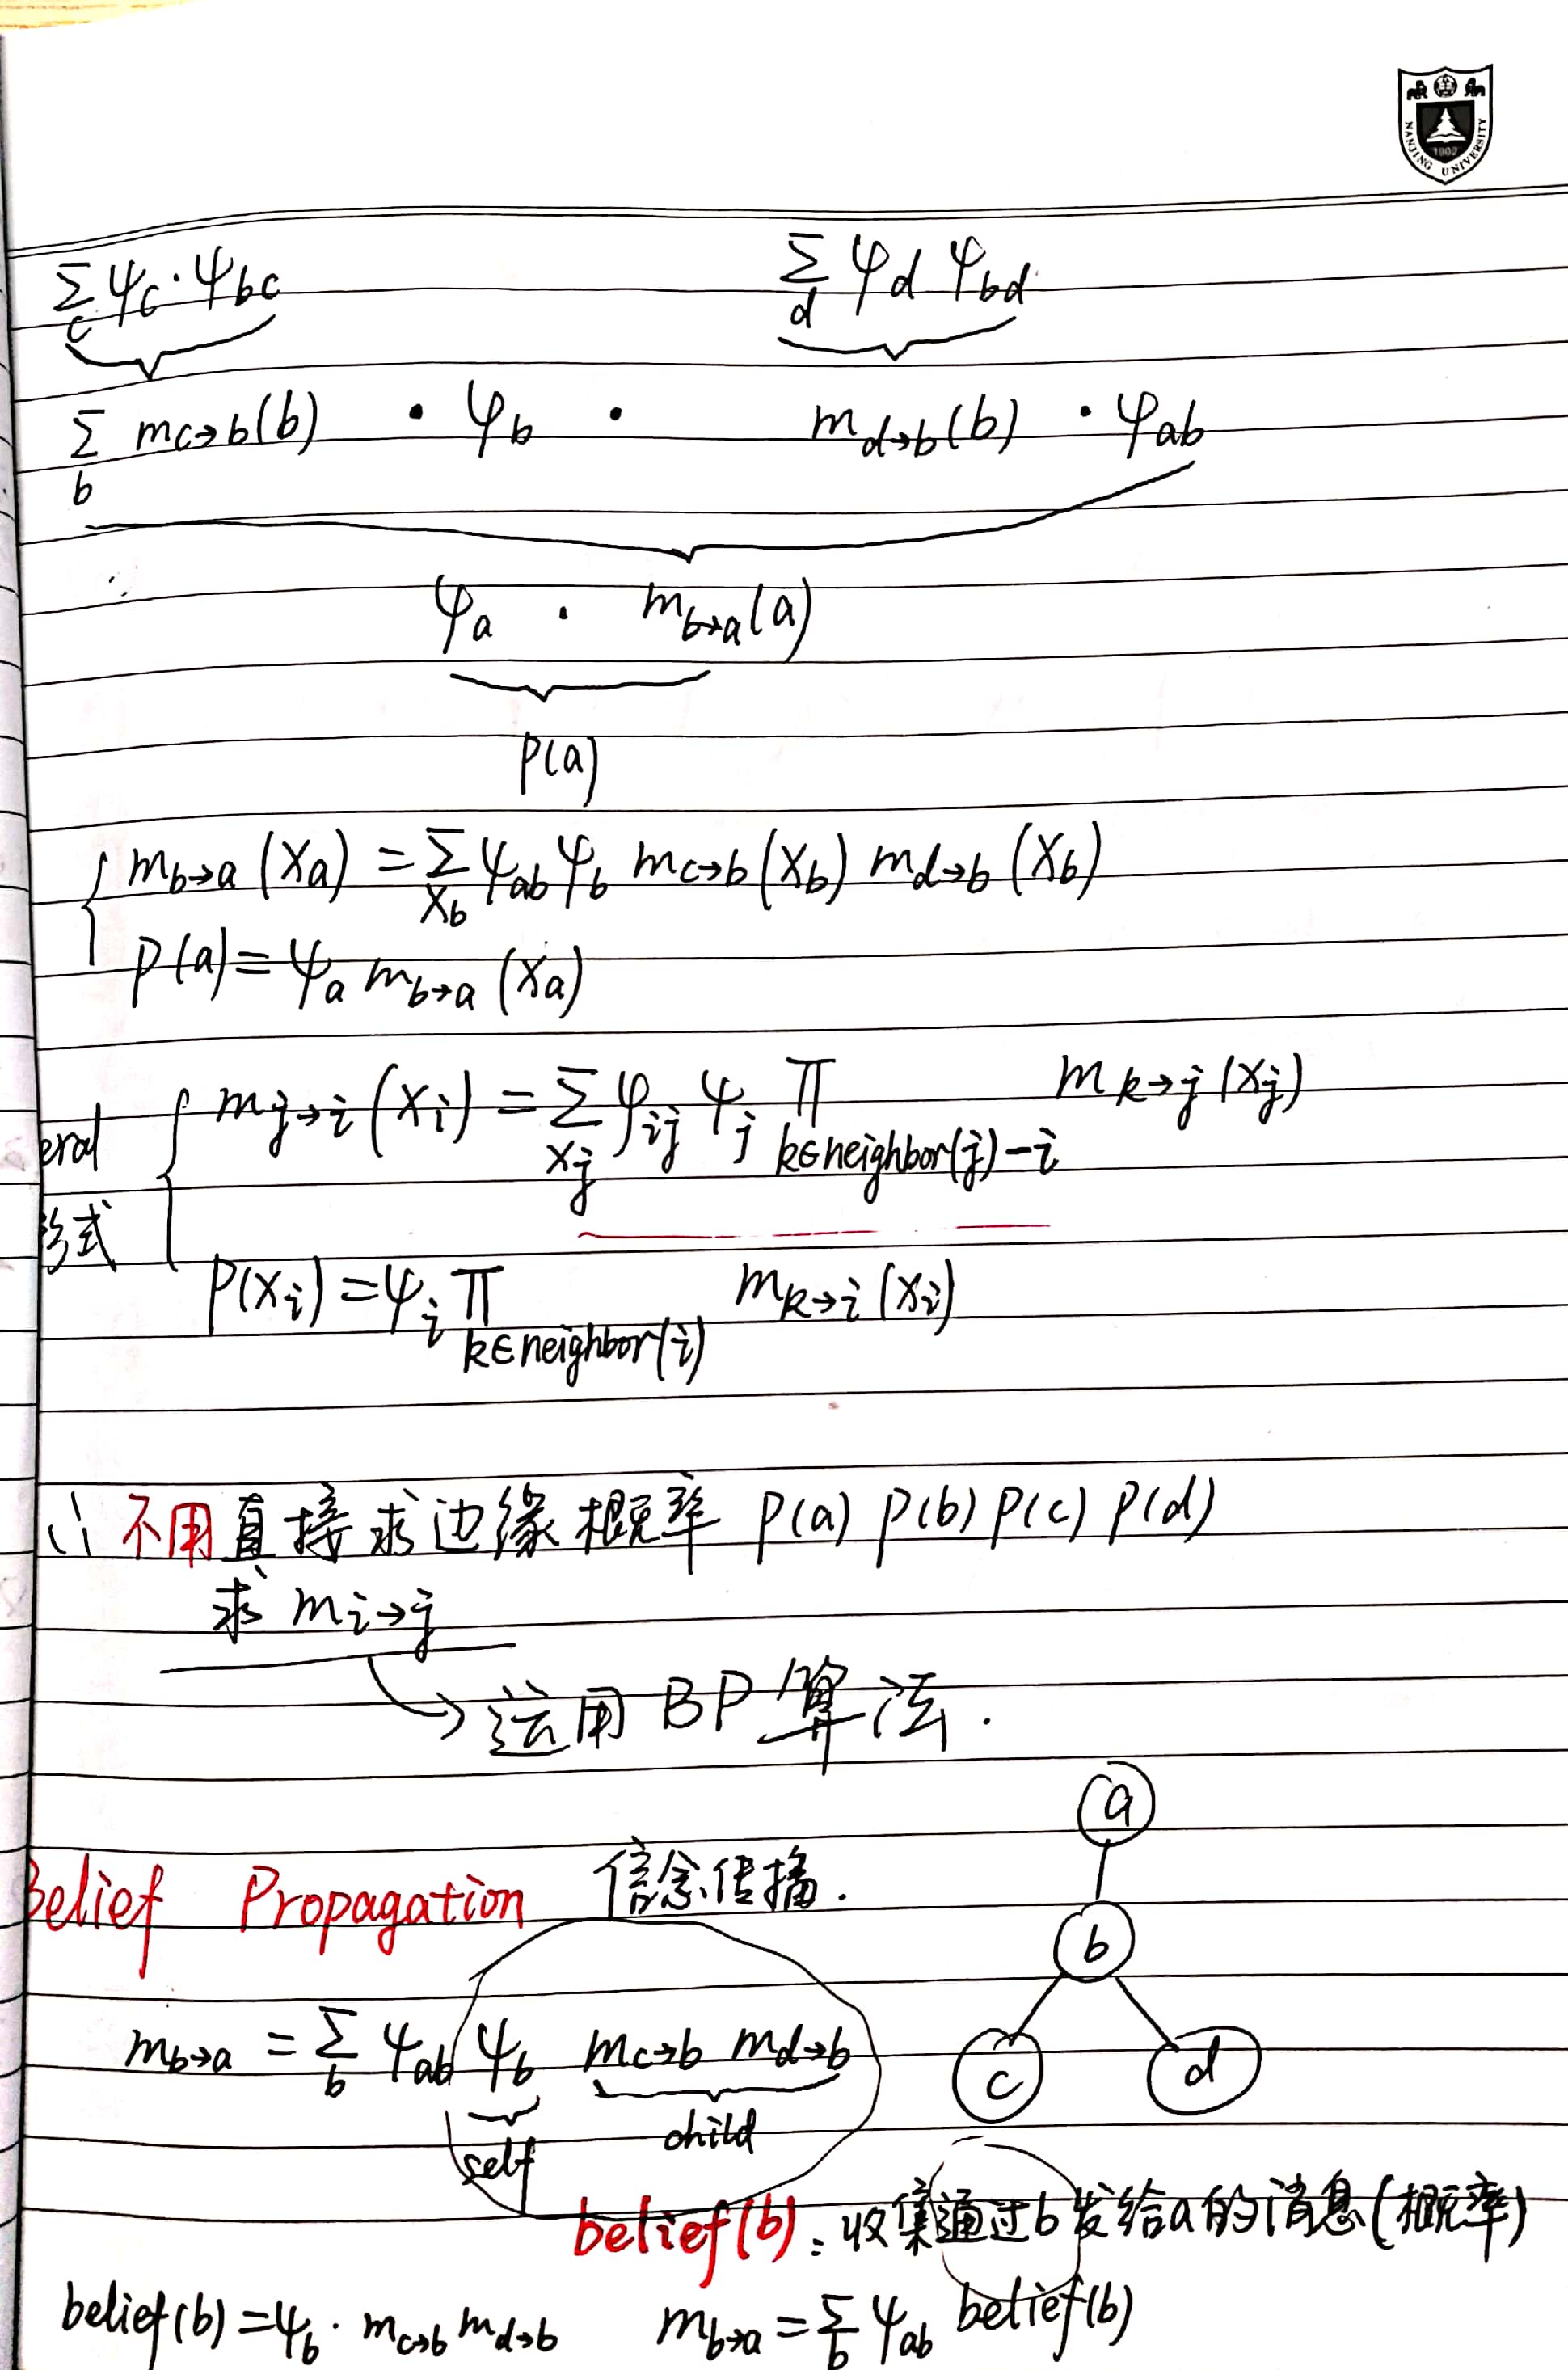 NANJING UNIVERSITY
1902
∑_c ψ_c · ψ_bc    ∑_d ψ_d ψ_bd
∑_b m_c→b(b) · ψ_b · m_d→b(b) · ψ_ab
ψ_a · m_b→a(a)
P(a)
m_b→a(x_a) = ∑_x_b ψ_ab ψ_b m_c→b(x_b) m_d→b(x_b)
P(a) = ψ_a m_b→a(x_a)
eral m_j→i(x_i) = ∑_x_j ψ_ij ψ_j ∏_k∈neighbor(j)-i m_k→j(x_j)
形式
P(x_i) = ψ_i ∏_k∈neighbor(i) m_k→i(x_i)
∴ 不用直接求边缘概率 P(a) P(b) P(c) P(d)
求 m_i→j
→ 运用 BP 算法.
a
Belief Propagation 信念传播.
b
m_b→a = ∑_b ψ_ab ψ_b m_c→b m_d→b
c d
self child
belief(b): 收集通过b发给a的消息(概率)
belief(b) = ψ_b · m_c→b m_d→b    m_b→a = ∑_b ψ_ab belief(b)